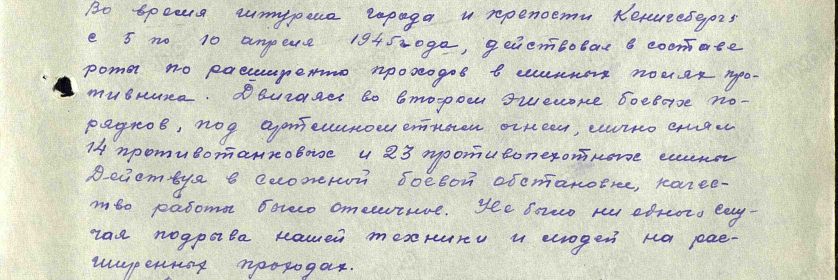 Во время штурма города и крепости Кенигсберг
с 5 по 10 апреля 1945 года, действовал в составе
роты по расширению проходов в минных полях про-
тивника. Двигаясь во втором эшелоне боевых по-
рядков, под артеминометным огнем, лично снял
14 противотанковых и 23 противопехотных мины
Действуя в сложной боевой обстановке, качес-
тво работы было отличное. Не было ни одного слу-
чая подрыва нашей техники и людей на рас-
ширенных проходах.